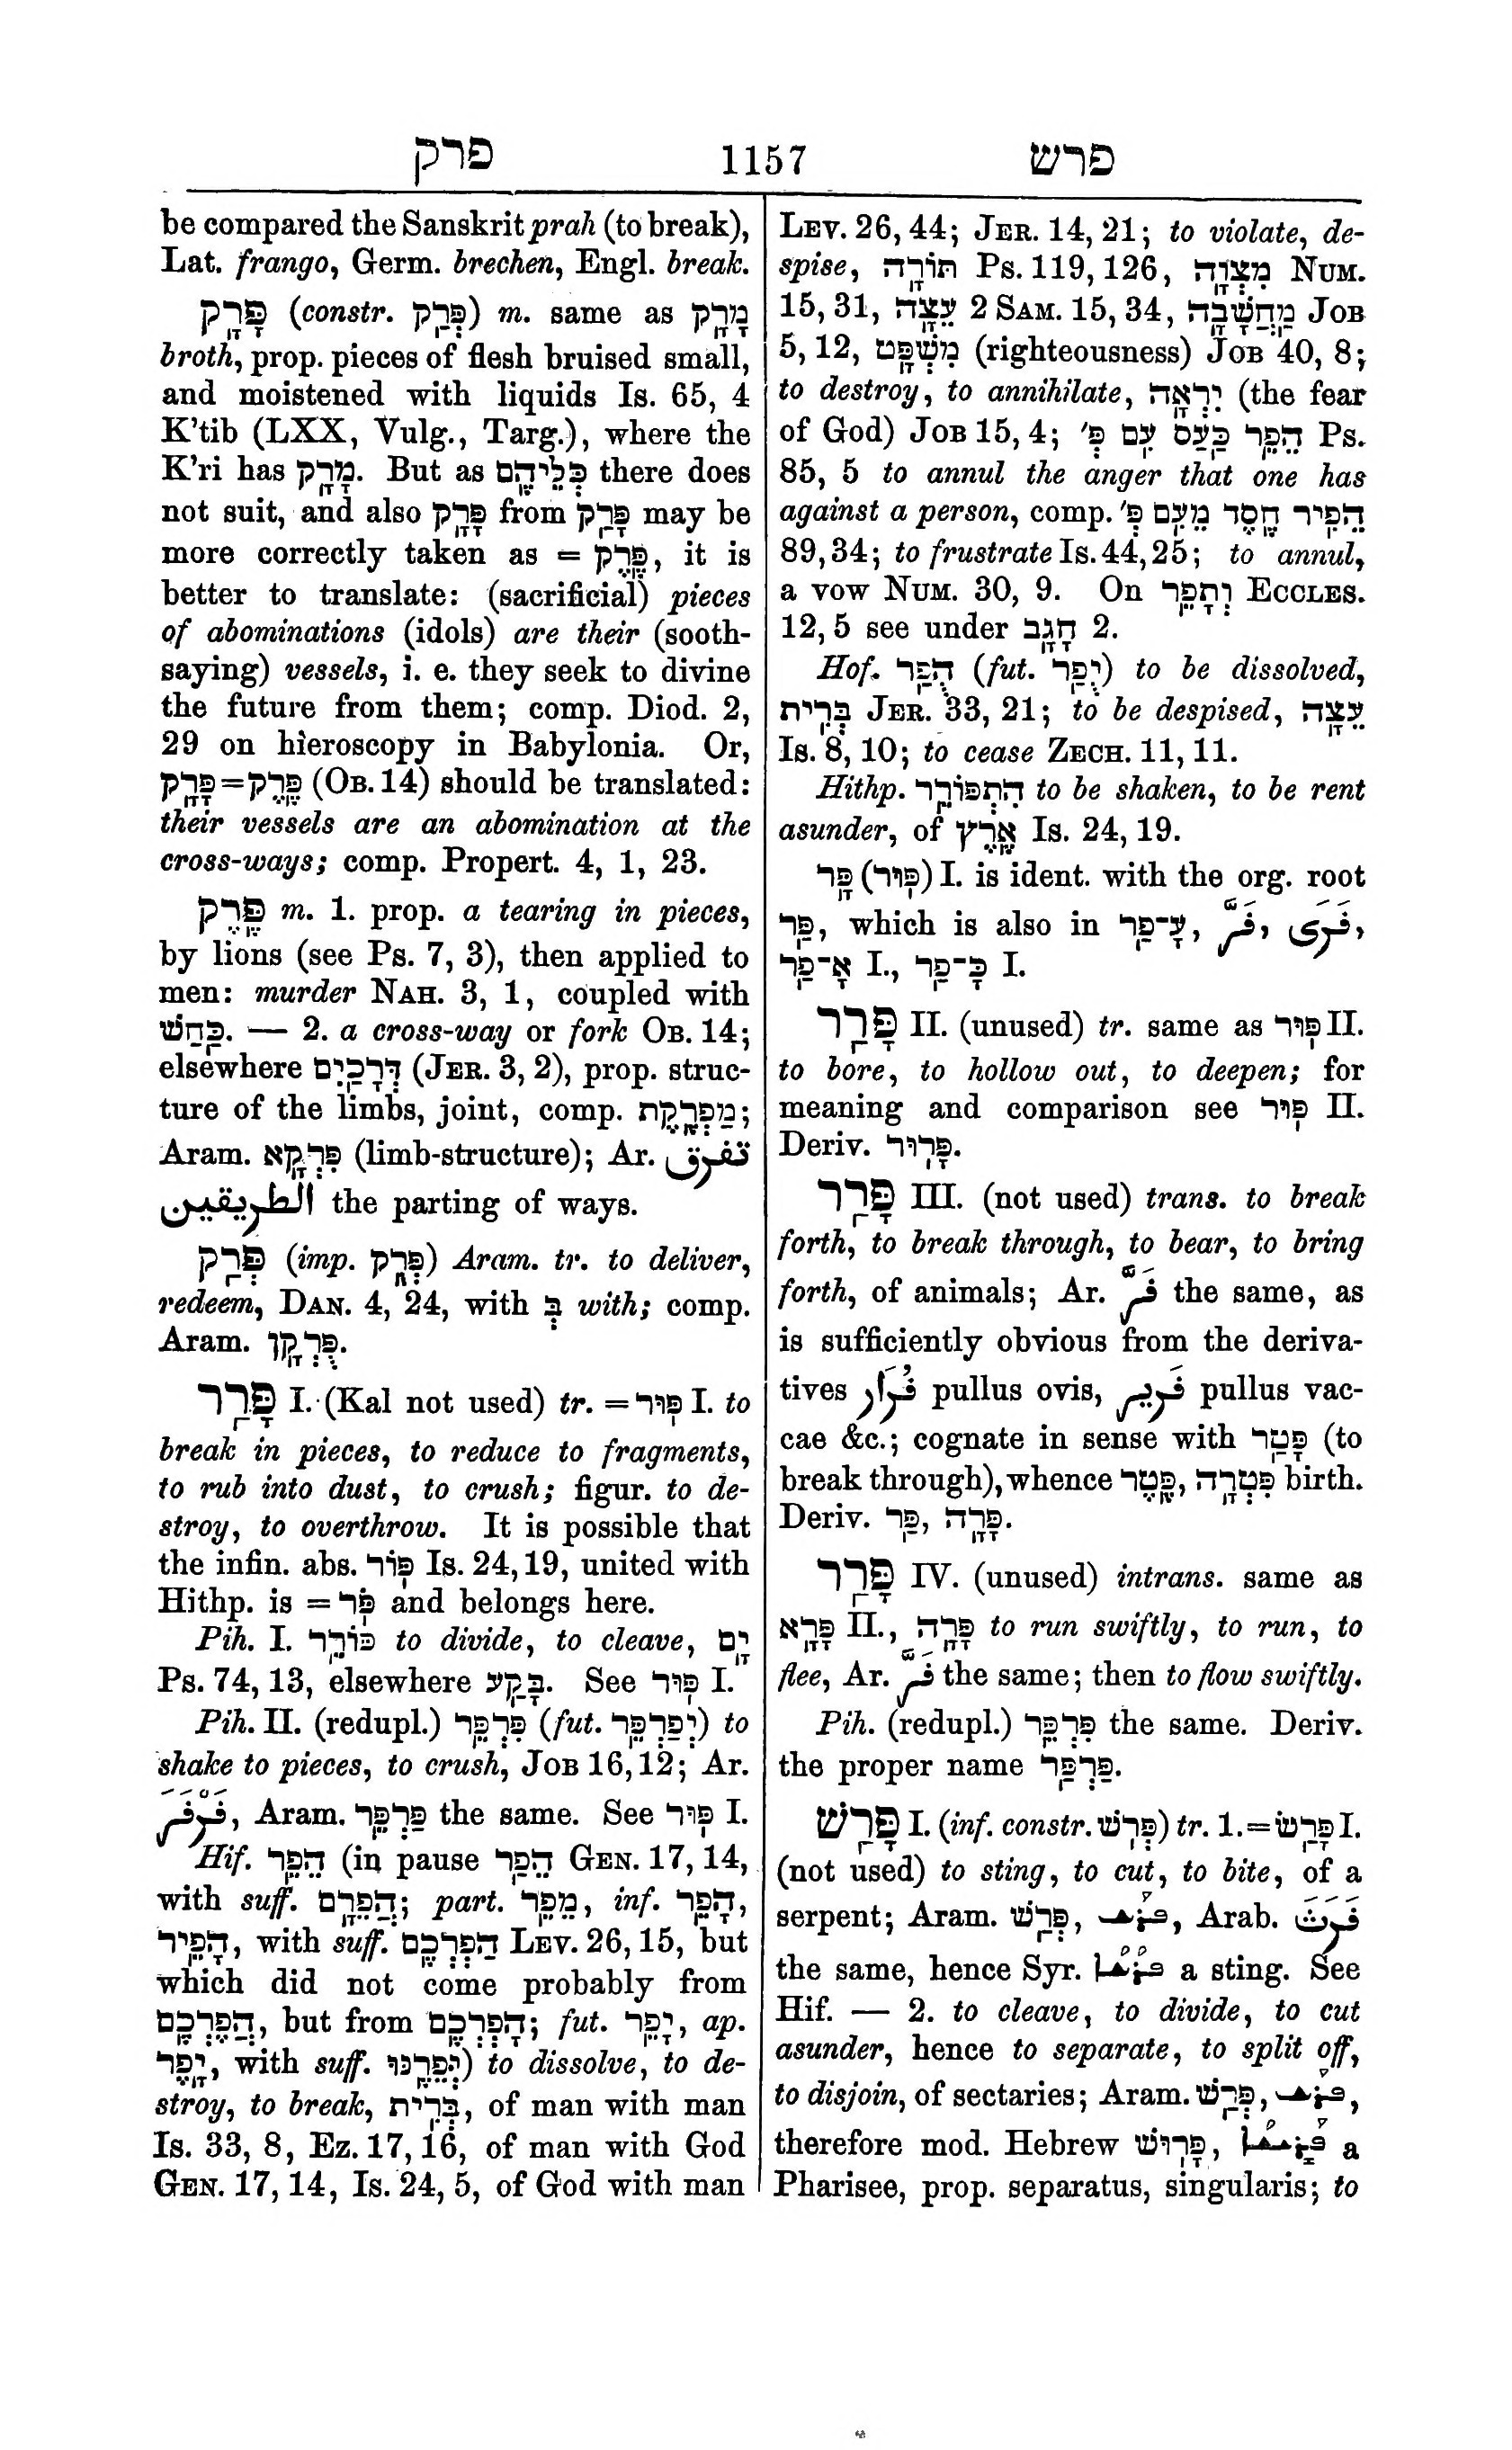 פרק 1157 פרש
be compared the Sanskrit prah (to break),
Lat. frango, Germ. brechen, Engl. break.
פָּרָק (constr. פְּרַק) m. same as מָרָק
broth, prop. pieces of flesh bruised small,
and moistened with liquids Is. 65, 4
K’tib (LXX, Vulg., Targ.), where the
K’ri has מָרָק. But as כְּלֵיהֶם there does
not suit, and also פָּרָק from פָּרַק may be
more correctly taken as = פֶּרֶק, it is
better to translate: (sacrificial) pieces
of abominations (idols) are their (sooth-
saying) vessels, i. e. they seek to divine
the future from them; comp. Diod. 2,
29 on hieroscopy in Babylonia. Or,
פָּרָק=פֶּרֶק (Ob. 14) should be translated:
their vessels are an abomination at the
cross-ways; comp. Propert. 4, 1, 23.
פֶּרֶק m. 1. prop. a tearing in pieces,
by lions (see Ps. 7, 3), then applied to
men: murder Nah. 3, 1, coupled with
כַּחַשׁ. — 2. a cross-way or fork Ob. 14;
elsewhere דְּרָכַיִם (Jer. 3, 2), prop. struc-
ture of the limbs, joint, comp. מַפְרֶקֶת;
Aram. פִּרְקָא (limb-structure); Ar. تفرق
الطريقين the parting of ways.
פְּרַק (imp. פְּרֻק) Aram. tr. to deliver,
redeem, Dan. 4, 24, with בְּ with; comp.
Aram. פֻּרְקָן.
פָּרַר I. (Kal not used) tr. = פּוּר I. to
break in pieces, to reduce to fragments,
to rub into dust, to crush; figur. to de-
stroy, to overthrow. It is possible that
the infin. abs. פּוֹר Is. 24, 19, united with
Hithp. is = פֹּר and belongs here.
Pih. I. פּוֹרֵר to divide, to cleave, יָם
Ps. 74, 13, elsewhere בָּקַע. See פּוּר I.
Pih. II. (redupl.) פִּרְפֵּר (fut. יְפַרְפֵּר) to
shake to pieces, to crush, Job 16, 12; Ar.
فَرْفَرَ, Aram. פַּרְפֵּר the same. See פּוּר I.
Hif. הֵפֵר (in pause הֵפַר Gen. 17, 14,
with suff. הֲפֵרָם; part. מֵפֵר, inf. הָפֵר,
הָפֵיר, with suff. הַפְרְכֶם Lev. 26, 15, but
which did not come probably from
הֲפֶרְכֶם, but from הָפְרְכֶם; fut. יָפֵר, ap.
יָפֶר, with suff. יְפֵרֶנּוּ) to dissolve, to de-
stroy, to break, בְּרִית, of man with man
Is. 33, 8, Ez. 17, 16, of man with God
Gen. 17, 14, Is. 24, 5, of God with man
Lev. 26, 44; Jer. 14, 21; to violate, de-
spise, תּוֹרָה Ps. 119, 126, מִצְוָה Num.
15, 31, עֵצָה 2 Sam. 15, 34, מַחֲשָׁבָה Job
5, 12, מִשְׁפָּט (righteousness) Job 40, 8;
to destroy, to annihilate, יִרְאָה (the fear
of God) Job 15, 4; הֵפֵר כַּעַס עִם פְּ׳ Ps.
85, 5 to annul the anger that one has
against a person, comp. הֵפִיר חֶסֶד מֵעִם פְּ׳
89, 34; to frustrate Is. 44, 25; to annul,
a vow Num. 30, 9. On וְתָפֵר Eccles.
12, 5 see under חָגָב 2.
Hof. הֻפַר (fut. יֻפַר) to be dissolved,
בְּרִית Jer. 33, 21; to be despised, עֵצָה
Is. 8, 10; to cease Zech. 11, 11.
Hithp. הִתְפּוֹרֵר to be shaken, to be rent
asunder, of אֶרֶץ Is. 24, 19.
פָּר (פּוּר) I. is ident. with the org. root
פַּר, which is also in עָ־פַר, فَرَّ, فَرَى,
אָ־פַר I., כָּ־פַר I.
פָּרַר II. (unused) tr. same as פּוּר II.
to bore, to hollow out, to deepen; for
meaning and comparison see פּוּר II.
Deriv. פָּרוּר.
פָּרַר III. (not used) trans. to break
forth, to break through, to bear, to bring
forth, of animals; Ar. فَرَّ the same, as
is sufficiently obvious from the deriva-
tives فُرَار pullus ovis, فَرِير pullus vac-
cae &c.; cognate in sense with פָּטַר (to
break through), whence פֶּטֶר, פִּטְרָה birth.
Deriv. פַּר, פָּרָה.
פָּרַר IV. (unused) intrans. same as
פָּרָא II., פָּרָה to run swiftly, to run, to
flee, Ar. فَرَّ the same; then to flow swiftly.
Pih. (redupl.) פִּרְפֵּר the same. Deriv.
the proper name פַּרְפַּר.
פָּרַשׁ I. (inf. constr. פְּרֹשׁ) tr. 1.=פָּרַשׂ I.
(not used) to sting, to cut, to bite, of a
serpent; Aram. פְּרַשׁ, ܦܪܫ, Arab. فَرَثَ
the same, hence Syr. ܦܪܫܐ a sting. See
Hif. — 2. to cleave, to divide, to cut
asunder, hence to separate, to split off,
to disjoin, of sectaries; Aram. פְּרַשׁ, ܦܪܫ,
therefore mod. Hebrew פָּרוּשׁ, ܦܪܝܫܐ a
Pharisee, prop. separatus, singularis; to